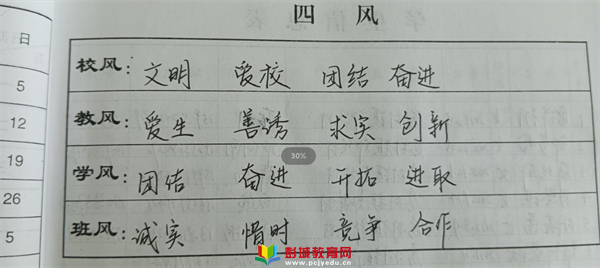 四 风
日
校风: 文明 爱校 团结 奋进
5
教风: 爱生 善诱 求实 创新
12
30%
19
学风: 团结 奋进 开拓 进取
26
班风: 诚实 惜时 竞争 合作
5
彭城教育网
www.pcjyedu.cn